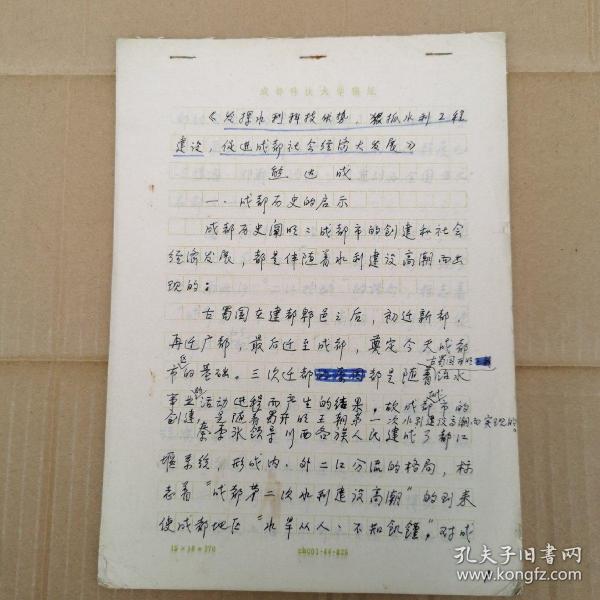 成都科技大学稿纸
《发挥水利科技优势，狠抓水利工程
建设，促进成都社会经济大发展》
熊达成
一、成都历史的启示
成都历史阐明：成都市的创建和社会
经济发展，都是伴随着水利建设高潮而出
现的：
古蜀国在建都郫邑之后，初迁新都，
再迁广都，最后迁至成都，奠定今天成都
市的基础。三次迁都都是随着治水
古蜀国开明王朝
事业的活动进程而产生的结果。故成都市的
创建，是随着蜀开明王朝第一次水利建设高潮而实现的。
秦李冰领导川西各族人民建成了都江
堰系统，形成内、外二江分流的格局，标
志着“成都第二次水利建设高潮”的到来
使成都地区“水旱从人，不知饥馑”，对成
15×18=270
孔夫子旧书网
www.kongfz.com